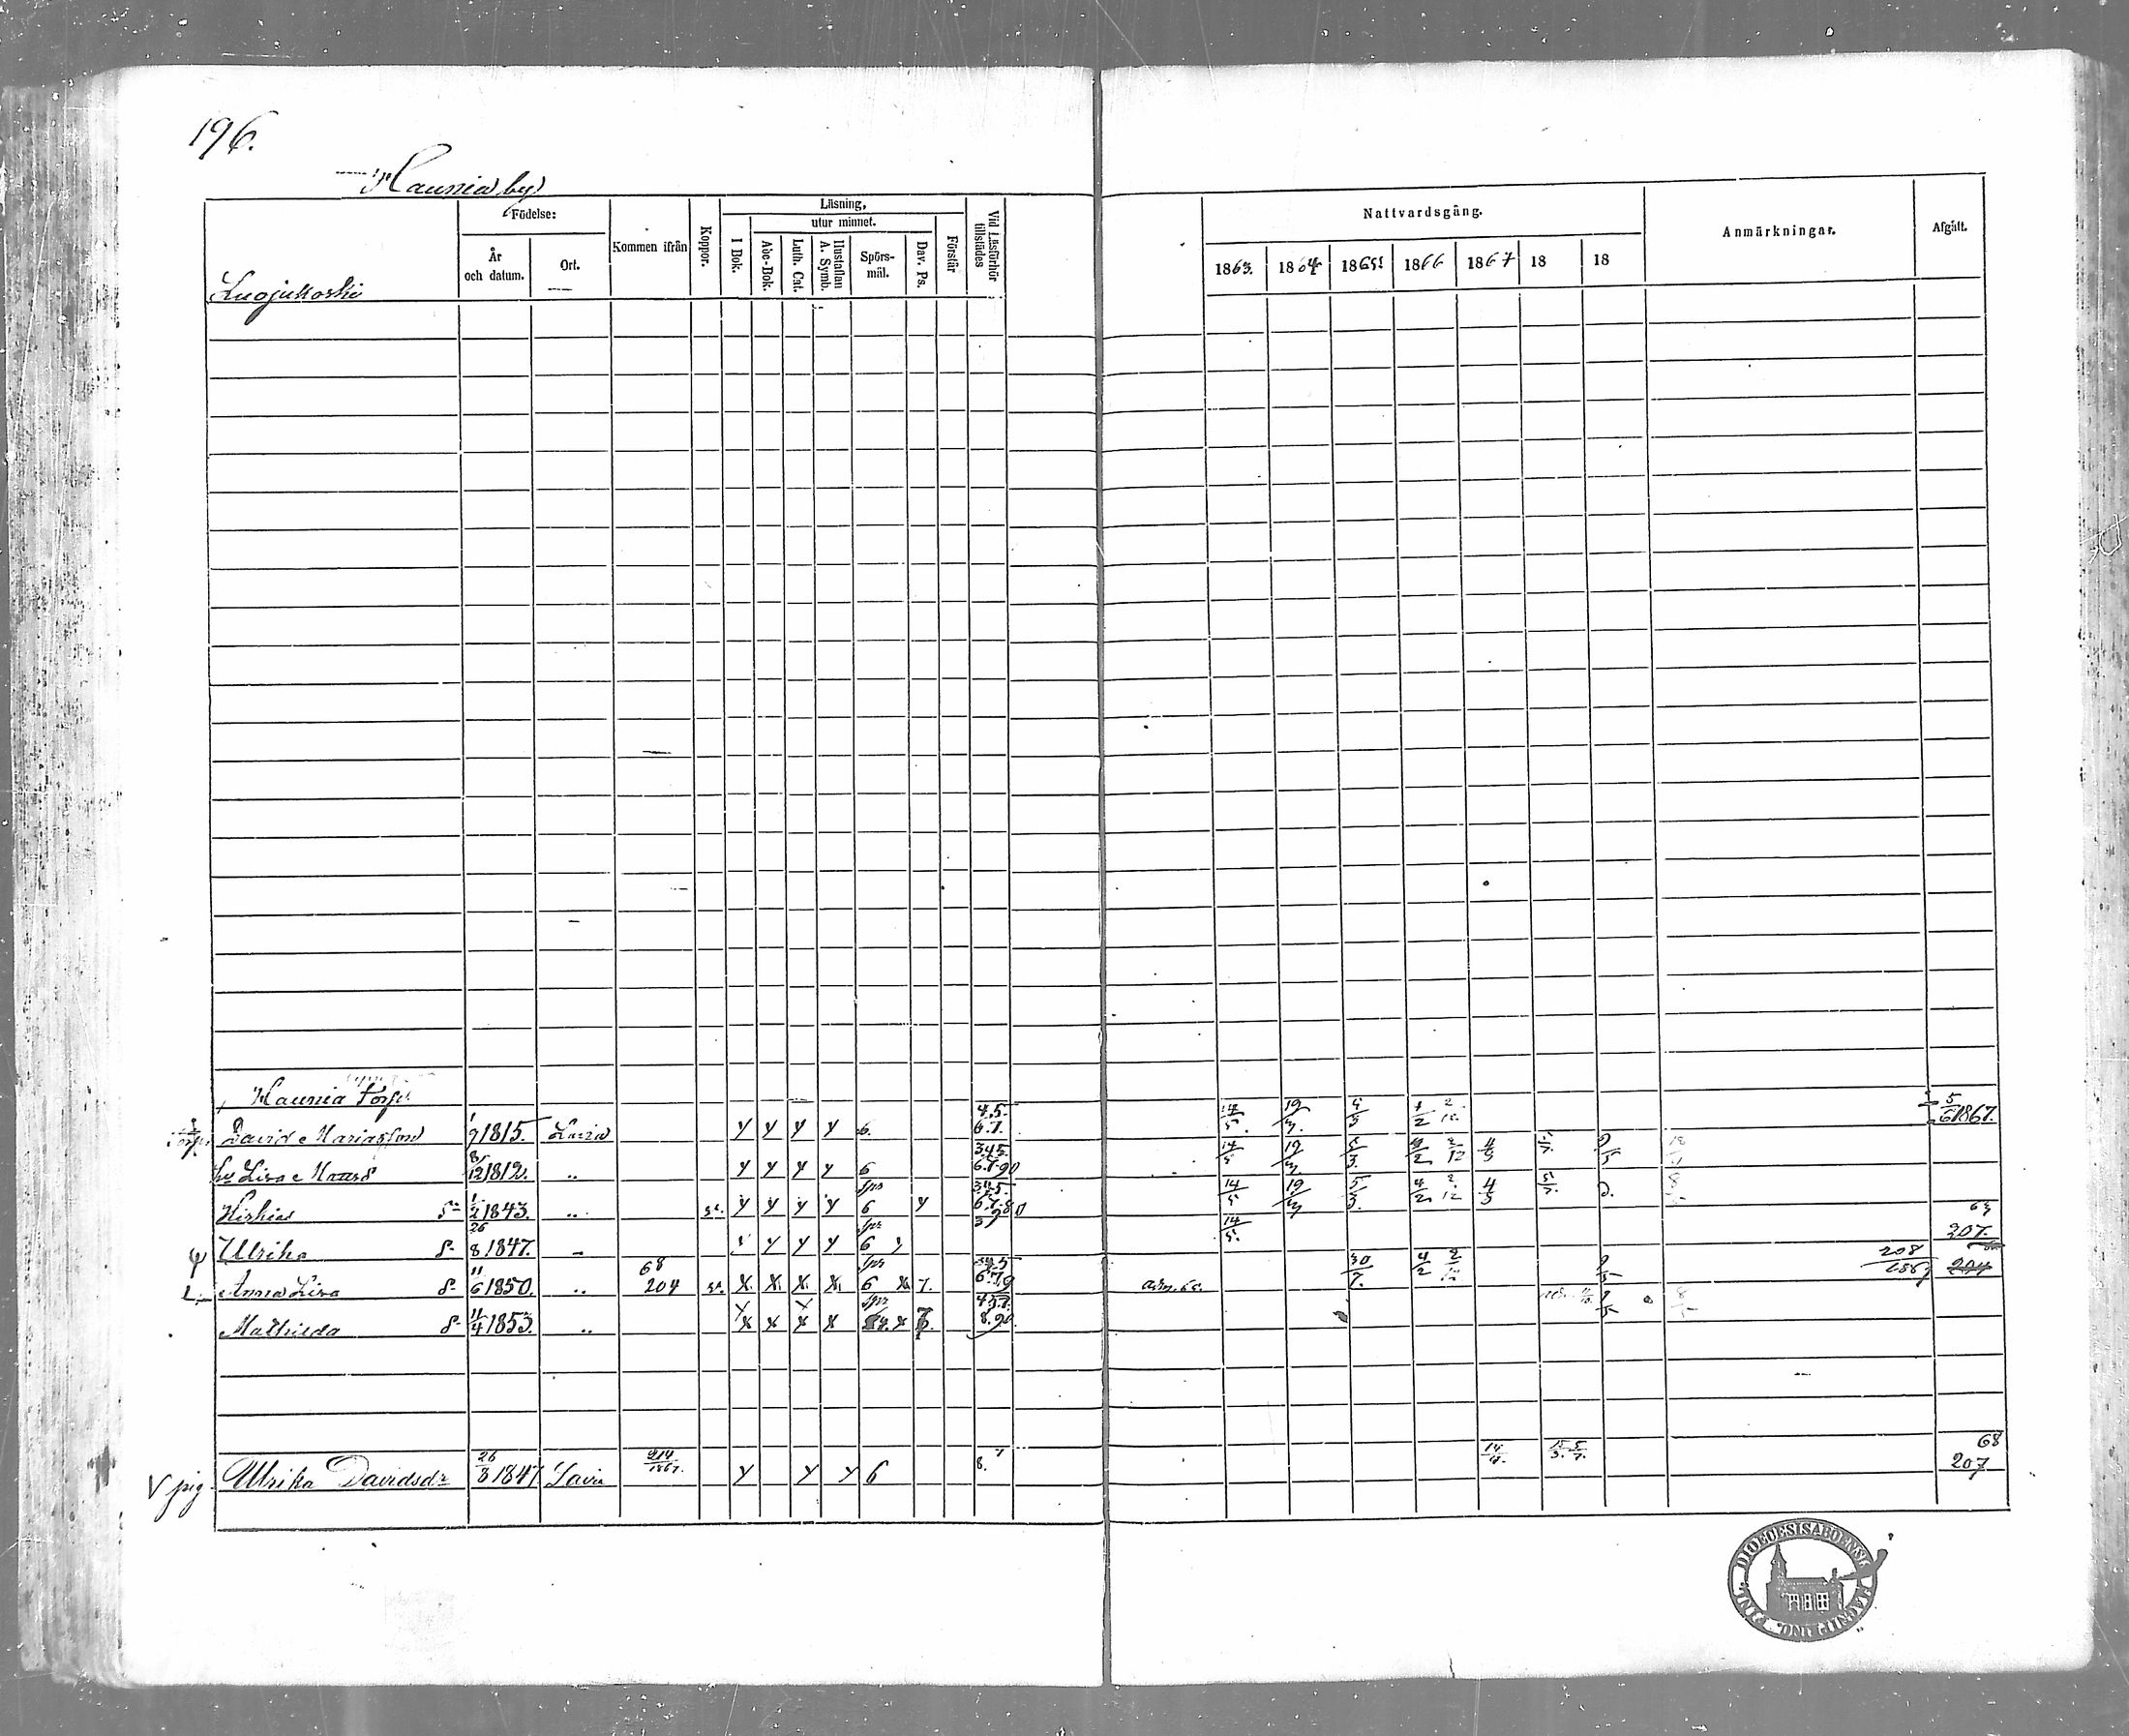 196.
Haunia by
Födelse:
Kommen ifrån
Koppor.
Läsning,
utur minnet.
I Bok.
Abc-Bok.
Luth. Cat.
Hustaflan A. Symb.
Spörs-mål.
Dav. Ps.
Förstår
Vid Läsförhör tillstädes
År och datum.
Ort.
Luojukoski
Nattvardsgång.
Anmärkningar.
Afgått.
1863. 1864 1865 1866 1867 18 18
Haunia Torp
Torp. David Mariasson 1/9 1815. Lavia y y y y 6. 4.5. 6.7. 14/5. 19/3. 5/3 4/2 2/12 5/6 1867.
hu Lisa 8/12 1812. „ y y y y 6 3.4.5. 6.7.90 14/5 19/3. 5/3. 4/2 2/12 4/3
Hiskias S. 1/2 1843. „ y y y y 6 y 14/5 19/3 5/3. 4/2 2/12 4/3
Ulrika d. 26/8 1847. y y y 6 y 14/5. 63 207.
Anna Lisa d. 11/6 1850. „ 68 204 x. x. x. x. 6 x. 7. adm. 65. 30/7. 4/2 2/12 208 1869 204
Mathilda d. 11/4 1853. „ x x x x 4.5.7. 8.90
V pig. Ulrika Davidsdr 26/8 1847 Lavia 214/1867. y y y 6 8. 14/ 5/7. 68 207
DIOECESIS ABOENSIS
MAGNI DUC. FINL.